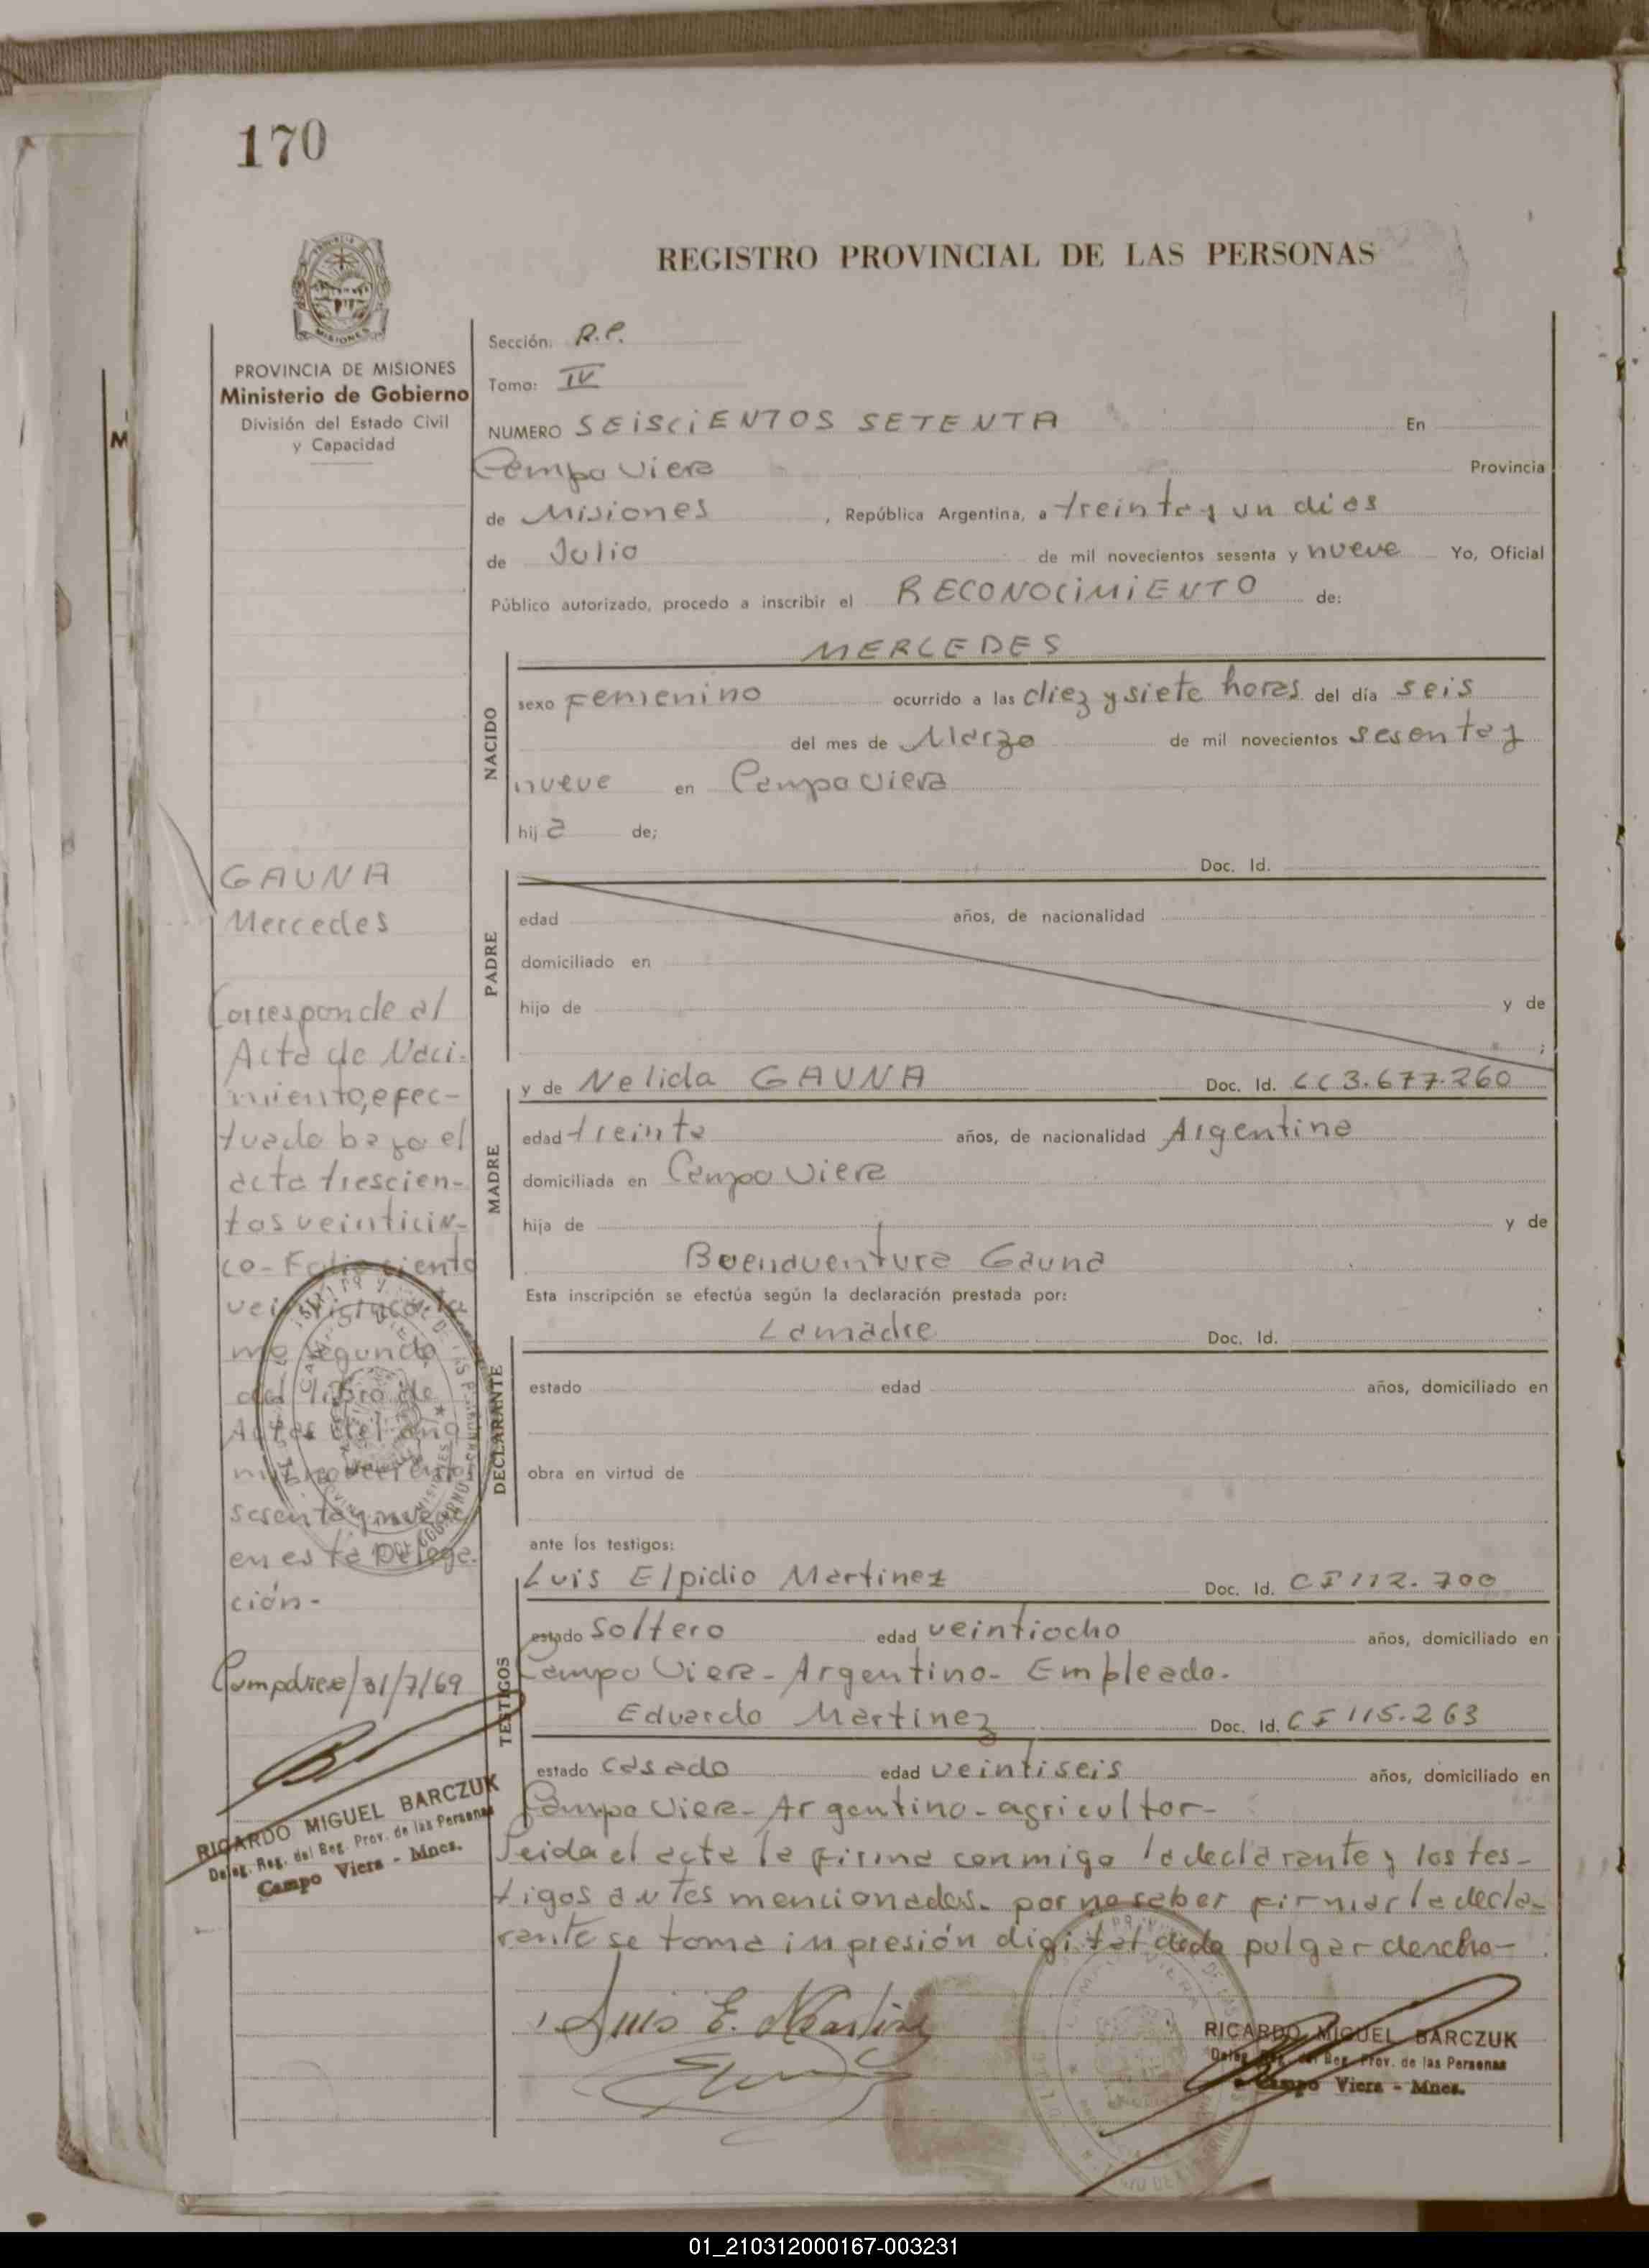 170
REGISTRO PROVINCIAL DE LAS PERSONAS
MISIONES
PROVINCIA DE MISIONES
Ministerio de Gobierno
División del Estado Civil
y Capacidad
GAUNA
Mercedes
Corresponde al
Acta de Naci-
miento, efec-
tuado bajo el
acta trescien-
tos veinticin-
co - Folio ciento
mo segundo
del libro de
Actas del año
sesenta y nueve
en esta Delega-
ción -
31/7/69
RICARDO MIGUEL BARCZUK
Deleg. Reg. del Reg. Prov. de las Personas
Campo Viera - Mnes.
Sección: R.P.
Tomo: IV
NUMERO SEISCIENTOS SETENTA En
Campo Viera Provincia
de Misiones, República Argentina, a treinta y un dias
de Julio de mil novecientos sesenta y nueve Yo, Oficial
Público autorizado, procedo a inscribir el RECONOCIMIENTO de:
NACIDO
MERCEDES
sexo Femenino ocurrido a las diez y siete horas del día seis
del mes de Marzo de mil novecientos sesenta y
nueve en Campo Viera
hija de;
PADRE
Doc. Id.
edad años, de nacionalidad
domiciliado en
hijo de y de
;
MADRE
y de Nelida GAUNA Doc. Id. CC3.677.260
edad treinta años, de nacionalidad Argentina
domiciliada en Campo Viera
hija de y de
Buenaventura Gauna
Esta inscripción se efectúa según la declaración prestada por:
DECLARANTE
La madre Doc. Id.
estado edad años, domiciliado en
obra en virtud de
ante los testigos:
TESTIGOS
Luis Elpidio Martinez Doc. Id. CI 112.700
estado soltero edad veintiocho años, domiciliado en
Campo Viera - Argentino - Empleado.
Eduardo Martinez Doc. Id. CI 115.263
estado casado edad veintiseis años, domiciliado en
Campo Viera - Argentino - agricultor -
Leida el acta la firma conmigo la declarante y los tes-
tigos antes mencionados. por no saber firmar la decla-
rante se toma impresión digital dedo pulgar derecho -
Luis E. Martinez
RICARDO MIGUEL BARCZUK
Deleg. Reg. del Reg. Prov. de las Personas
Campo Viera - Mnes.
01_210312000167-003231